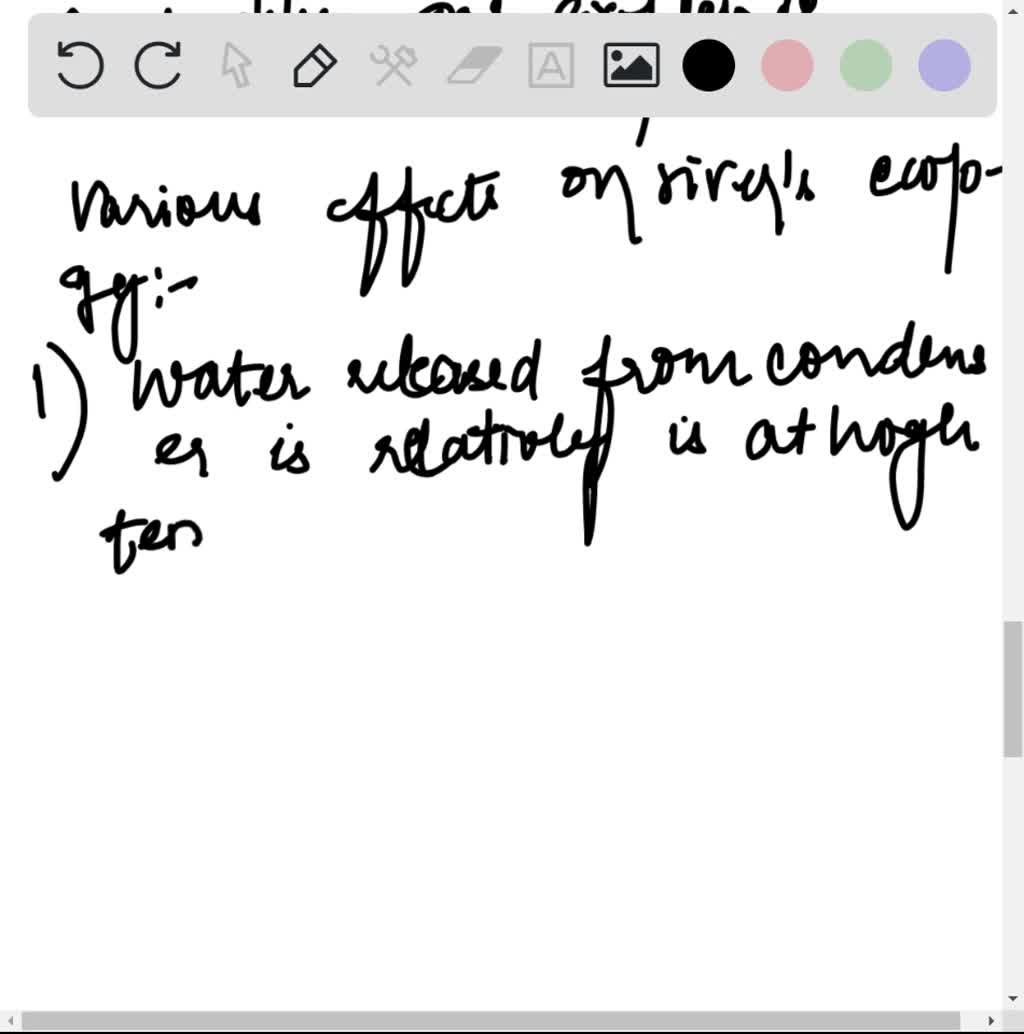 various effects on river's ecolo-
gy:-
1) Water released from condens
er is relatively is at hogh
tem